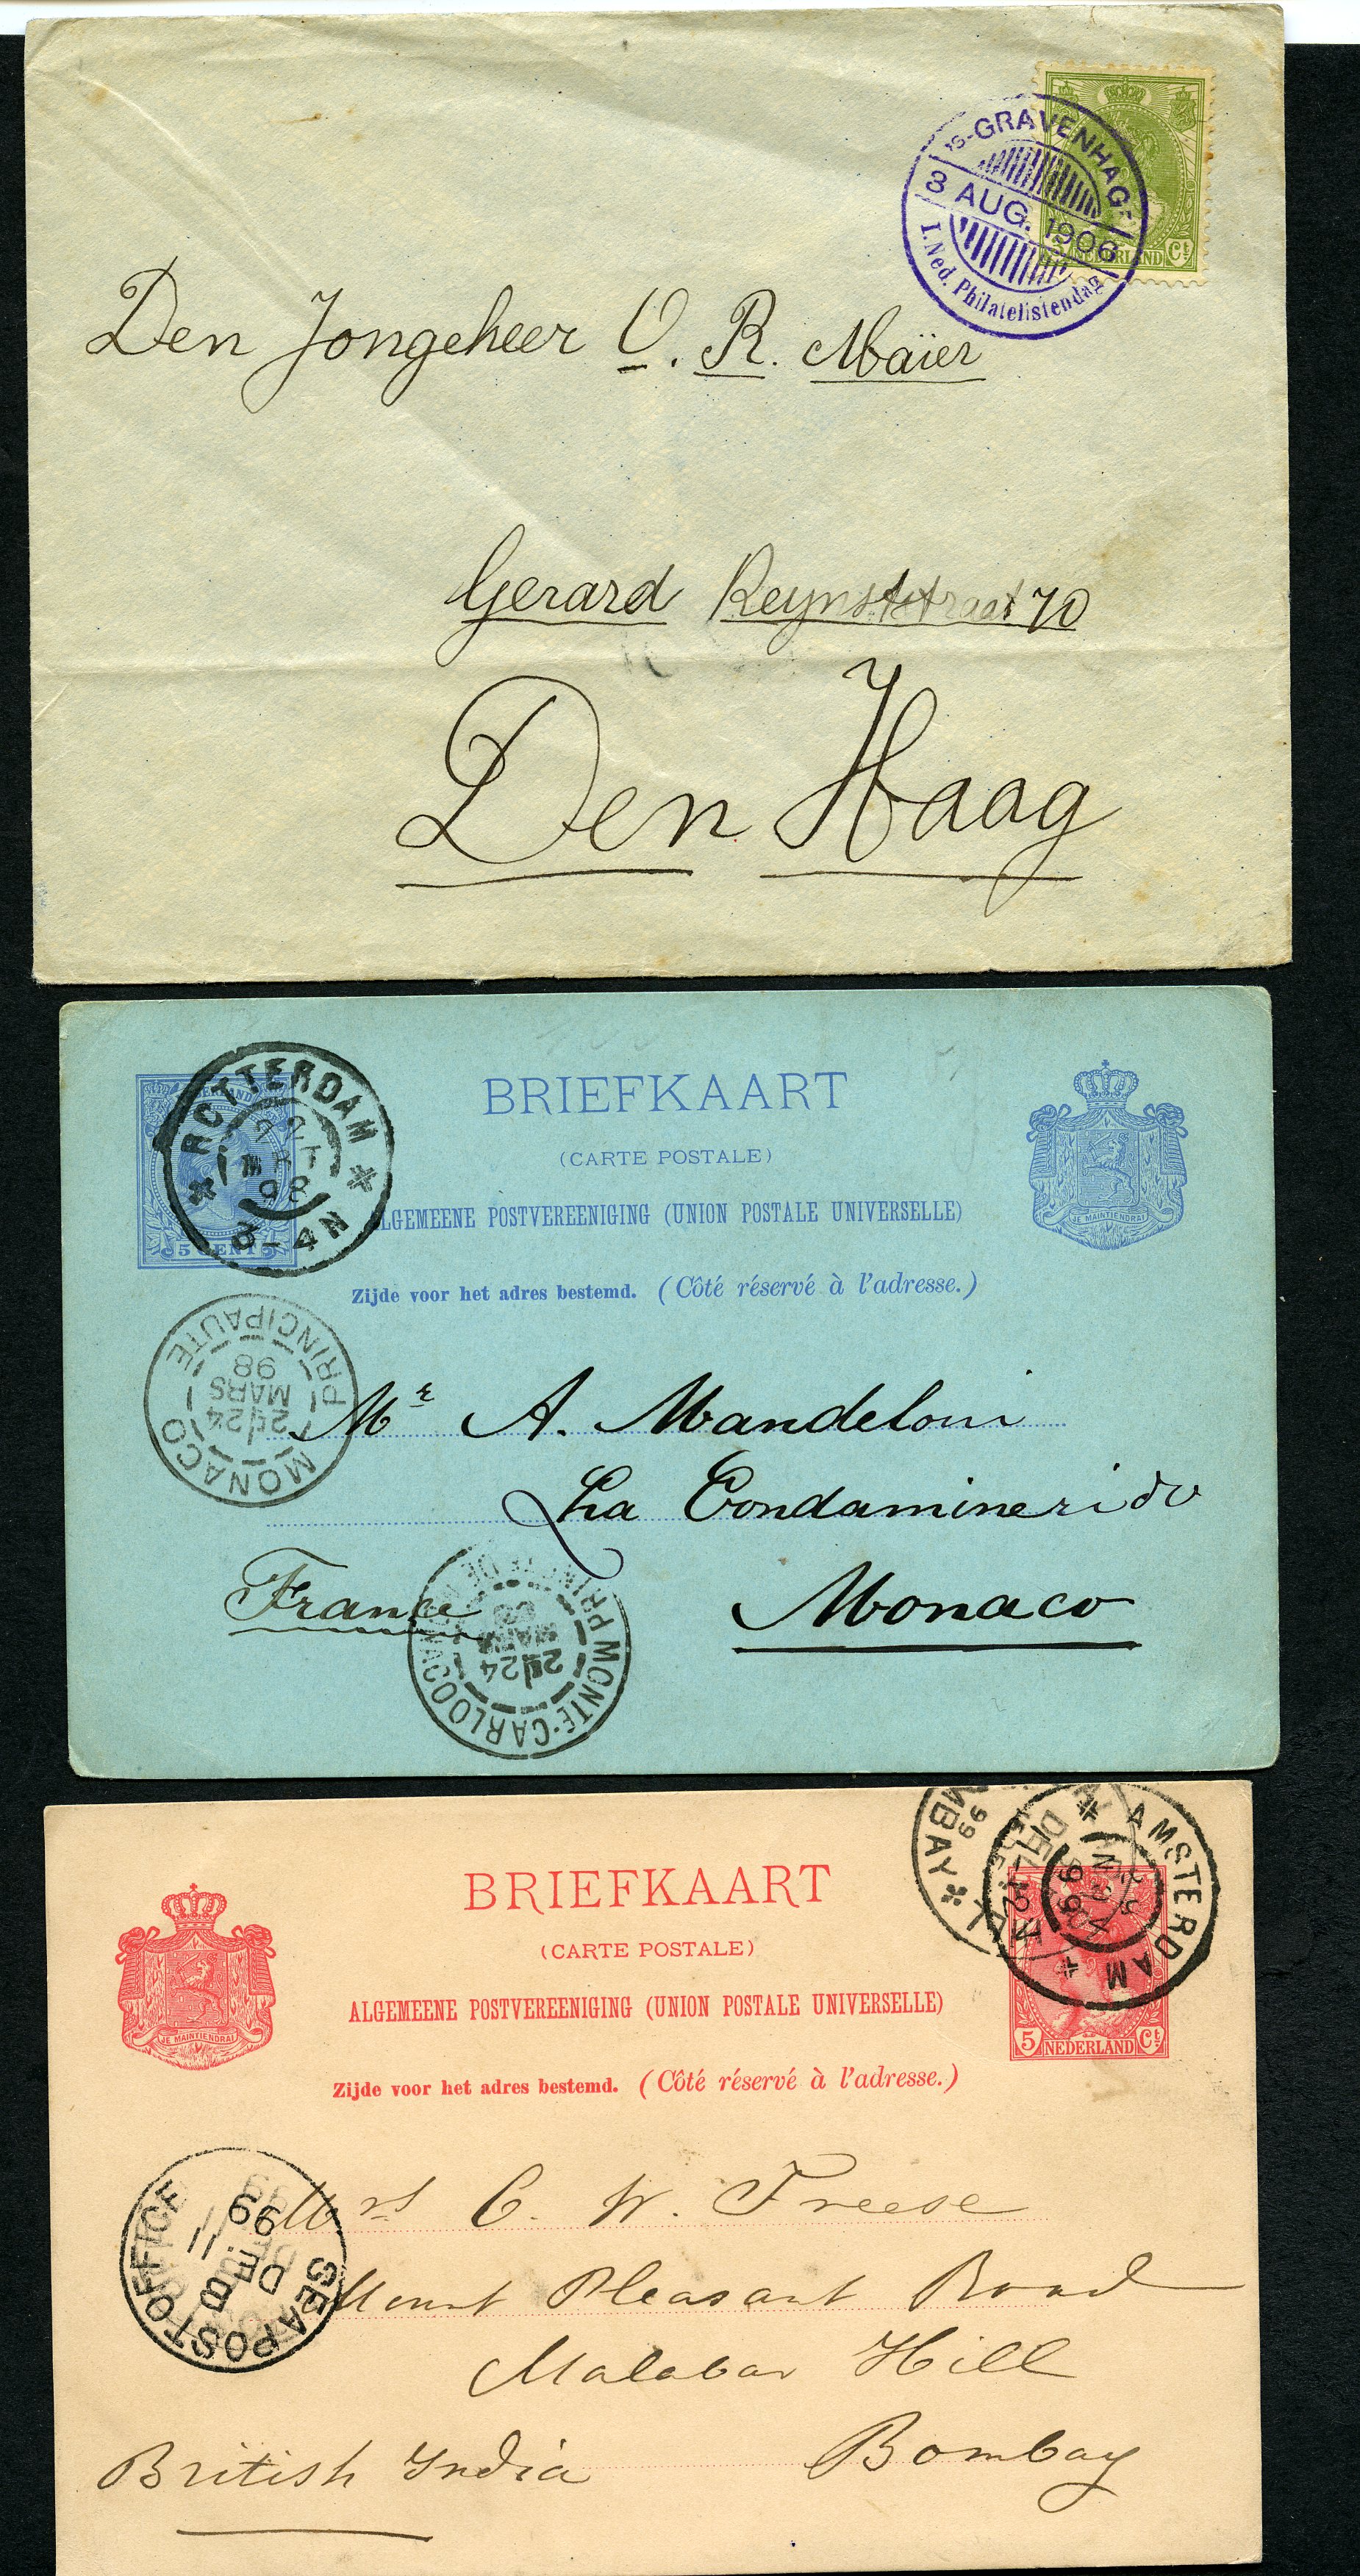 's-GRAVENHAG
3 AUG. 1906
I. Ned. Philatelistendag
NEDERLAND Ct
Den Jongeheer O. R. Maïer
Gerard Reynststraat 70
Den Haag
ROTTERDAM
98
3-4N
5 CENT
BRIEFKAART
(CARTE POSTALE)
ALGEMEENE POSTVEREENIGING (UNION POSTALE UNIVERSELLE)
JE MAINTIENDRAI
Zijde voor het adres bestemd. (Côté réservé à l'adresse.)
MONACO PRINCIPAUTE
24
MARS
98
Mr A. Mandeloni
La Condamine
France
Monaco
MONTE-CARLO PRINCIPTE DE MONACO
24
MARS
98
BRIEFKAART
(CARTE POSTALE)
ALGEMEENE POSTVEREENIGING (UNION POSTALE UNIVERSELLE)
JE MAINTIENDRAI
Zijde voor het adres bestemd. (Côté réservé à l'adresse.)
AMSTERDAM
99
MBAY
99
DEL
5 NEDERLAND Ct
SEA POST OFFICE
B
DE 11
99
Mrs C. W. Freese
Mount Pleasant Road
Malabar Hill
British India
Bombay